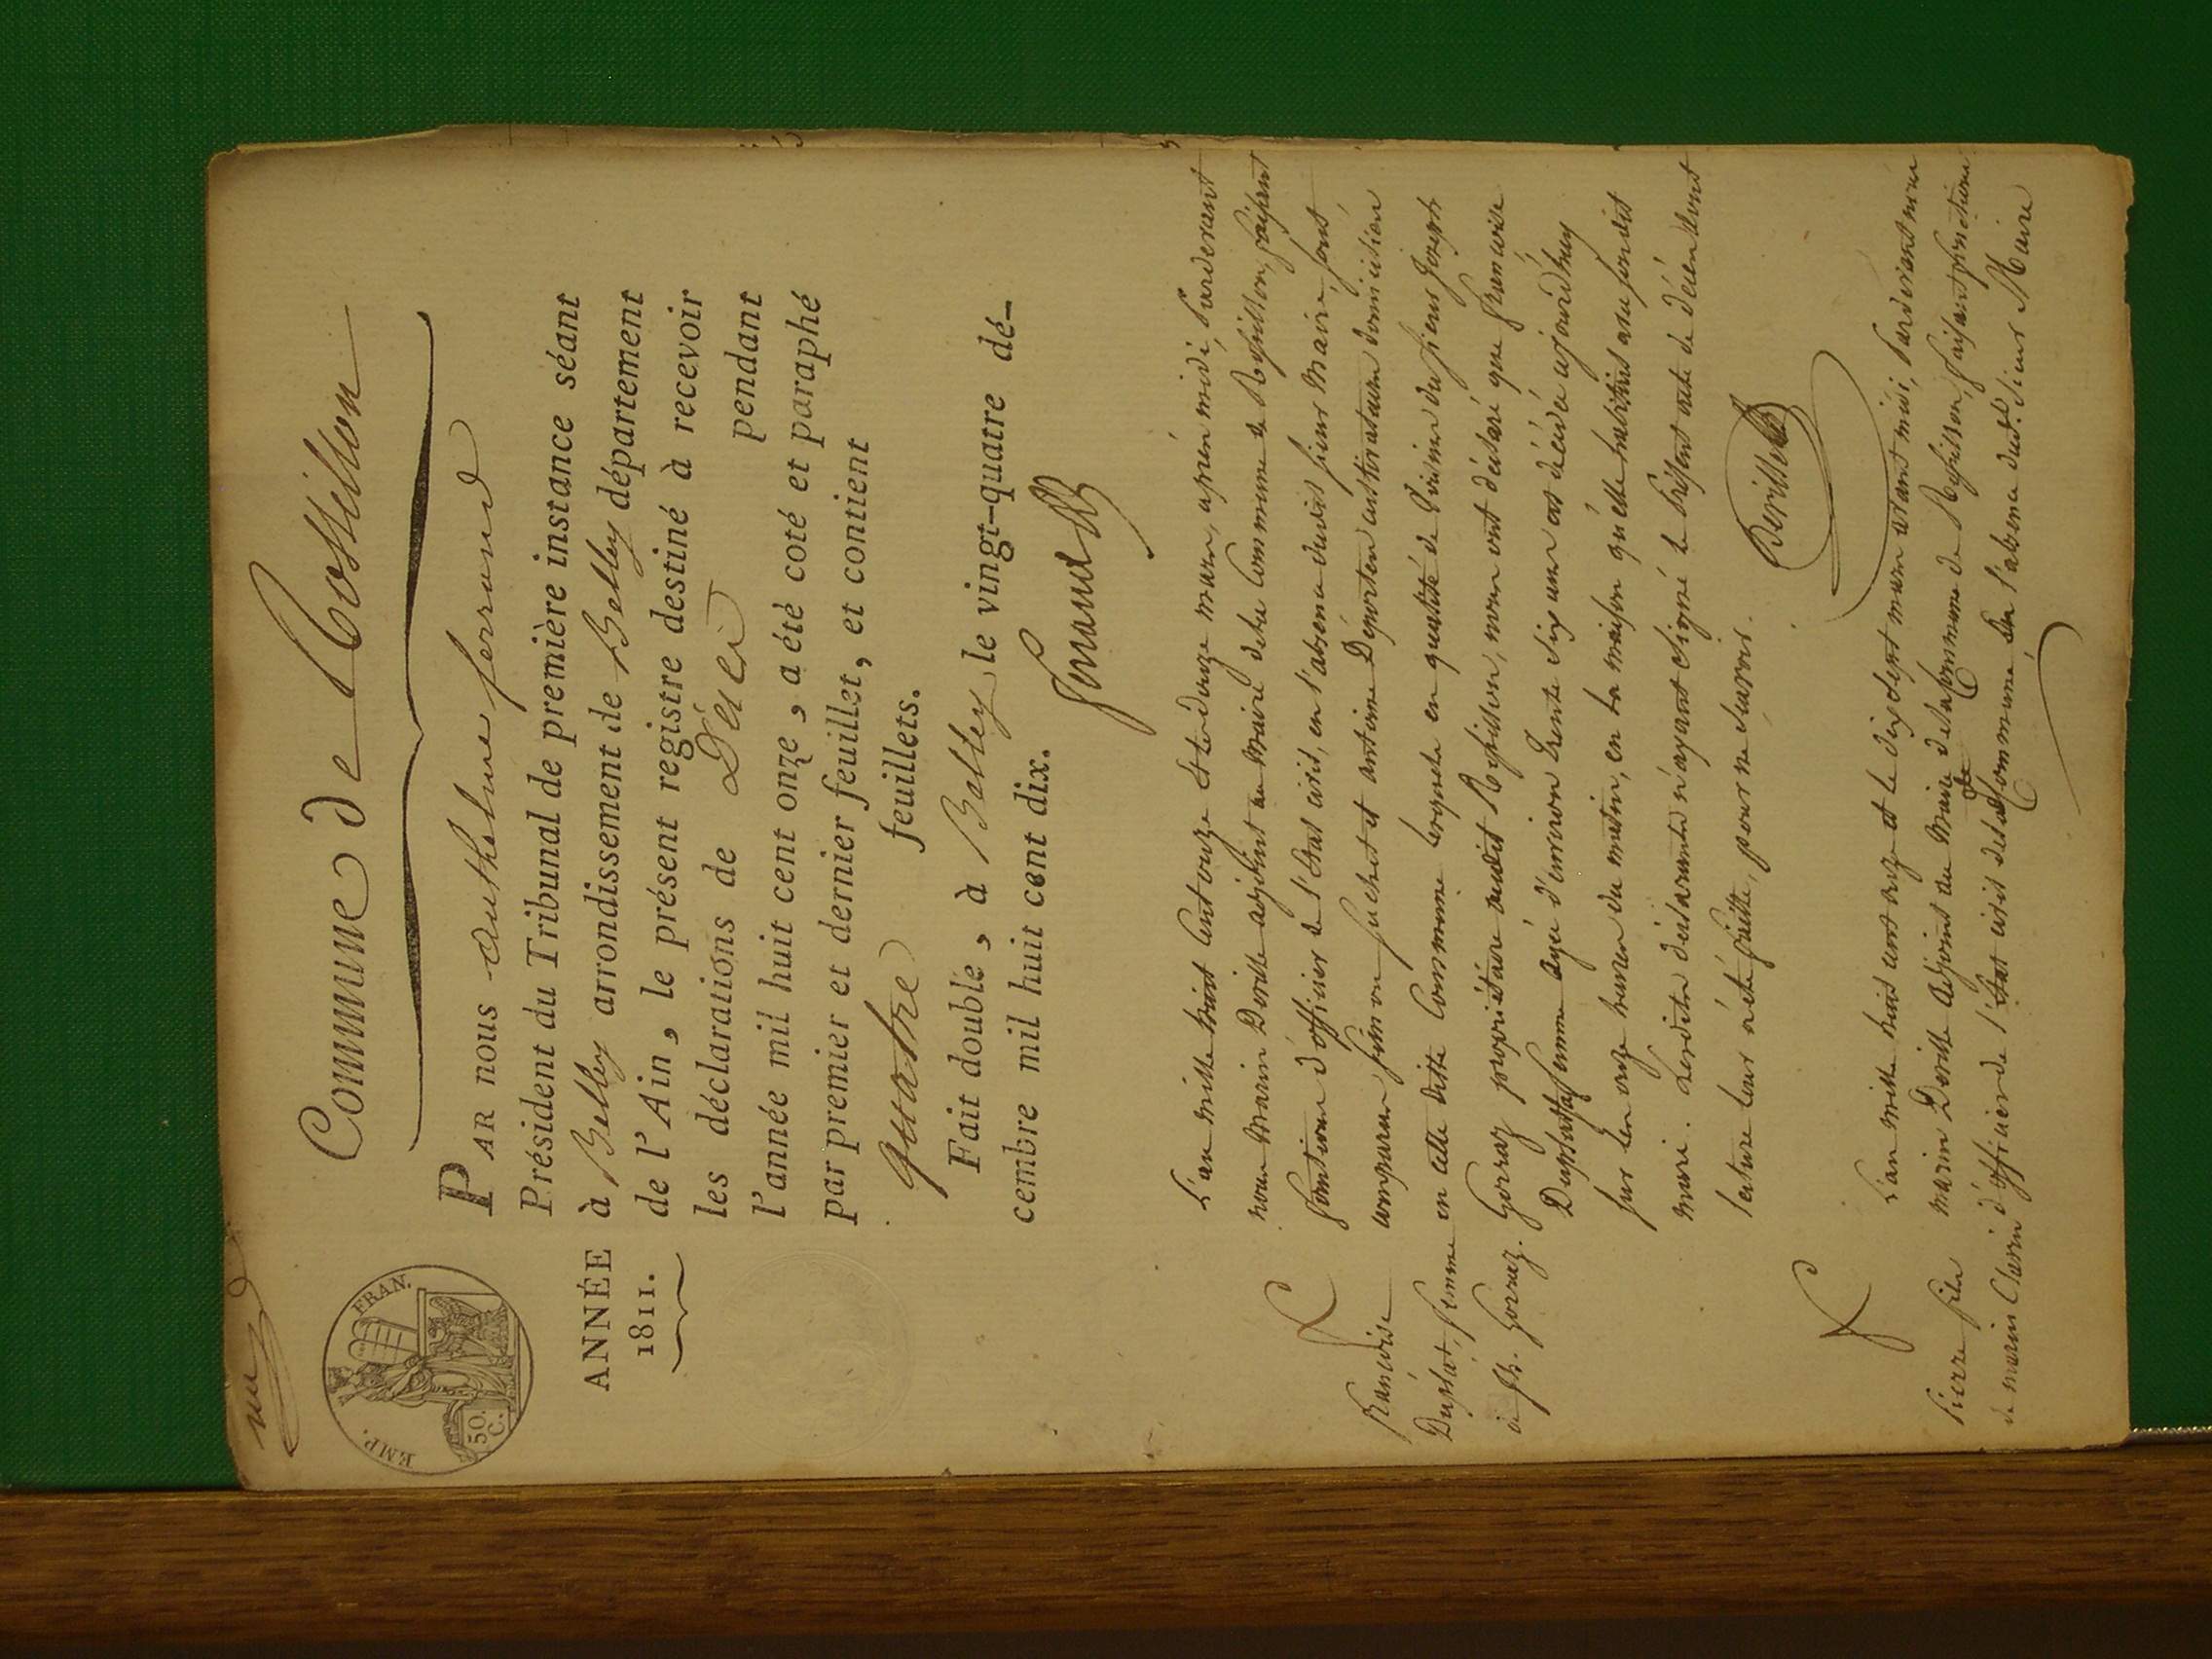 un
Commune de Rossillon
EMP. FRAN.
50. C.
ANNÉE
1811.
PAR nous anthelme ferrand
Président du Tribunal de première instance séant
à Belley arrondissement de Belley département
de l'Ain, le présent registre destiné à recevoir
les déclarations de Décès
pendant
l'année mil huit cent onze, a été coté et paraphé
par premier et dernier feuillet, et contient
quatre feuillets.
Fait double, à Belley le vingt-quatre dé-
cembre mil huit cent dix.
ferrand
L'an mille huit cent onze et le douze mars, après midi, Pardevant
nous Marin Derille adjoint au Maire de la Commune de Rossillon, faisant
fonctions d'officier de l'état civil, en l'absence dudit sieur Maire, sont
comparus, et antoine domicilié
en cette ditte Commune lesquels en qualité de voisins du sieur Joseph
Gorraz propriétaire audit Rossillon, nous ont déclaré que françoise
Duplat sa femme agée d'environ trente six ans est décédé aujourd'huy
sur les onze heures du matin, en la maison qu'elle habitait avec son dit
mari. Lesdits déclarants n'ayant signé le présent acte de décès dont
lecture leur a été faitte, pour ne savoir.
Derille
françoise
Duplat, femme
à Jh. Gorraz.
L'an mille huit cent onze et le dix sept mars avant midi, Pardevant nous
marin Derille adjoint au Maire de la Commune de Rossillon, faisant fonctions
d'officier de l'état civil de la de Commune En l'absence dud. Sieur Maire
Pierre fils
de marin Clerin